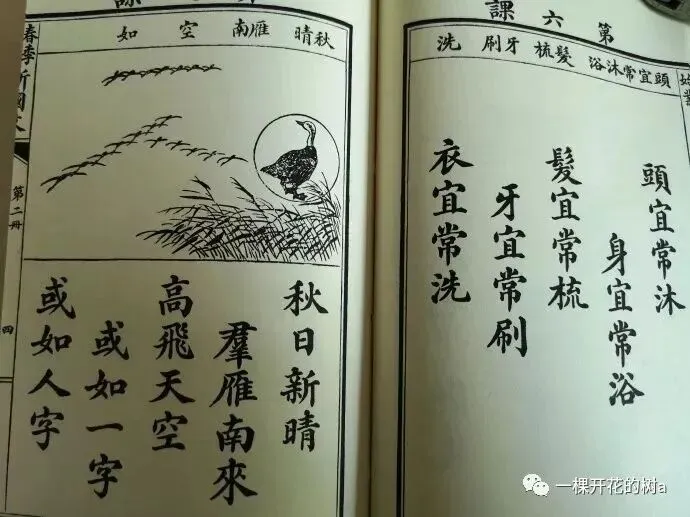 第六課
頭宜常沐浴 髮梳 牙刷 洗
頭宜常沐
身宜常浴
髮宜常梳
牙宜常刷
衣宜常洗
課
秋晴 雁南 空 如
秋日新晴
羣雁南來
高飛天空
或如一字
或如人字
春季新國文
第二冊
四
一棵开花的树a